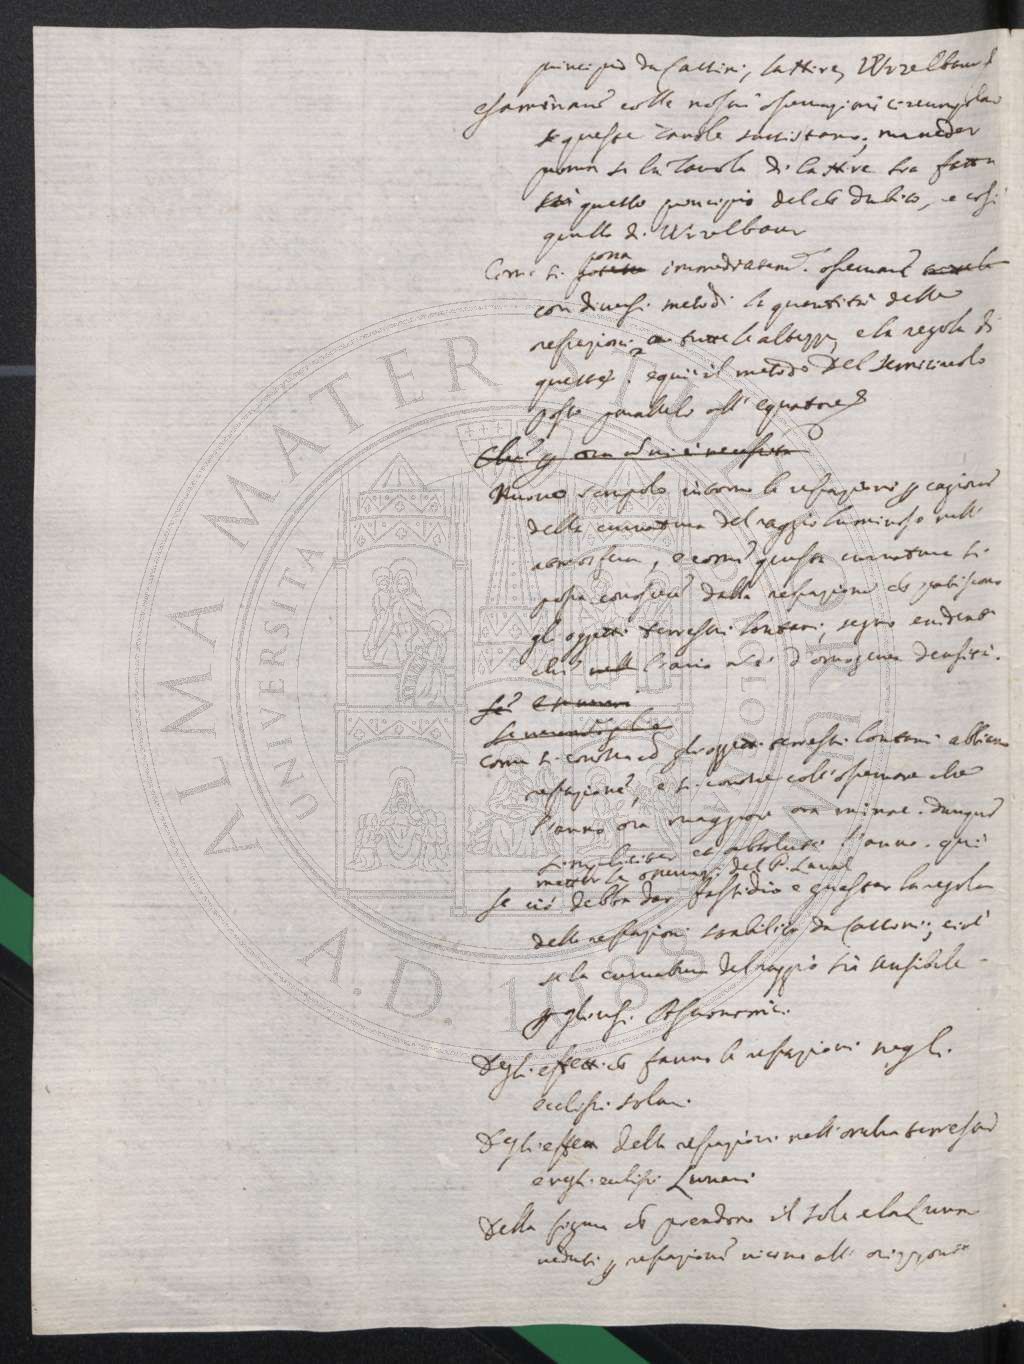 principio da Cassini, La Hire, Wrzelbaur
esaminare colle nostre osservazioni circumpolari
se queste tavole sussistano; ma veder
prima se la Tavola di La Hire sia fatta
quello principio del dubio, e così
quella di Wrzelbaur
Come si possa immediatam.e osservare
con diversi metodi la quantità delle
refrazioni a tutte le altezze, e la regola di
queste. e qui il metodo del semicircolo
posto parallelo all' equatore
Nuovo scrupolo intorno le refrazioni p cagione
della curvatura del raggio luminoso nell'
atmosfera, e come questa curvatura si
possa conoscere dalla refrazione ch patiscono
gli oggetti terrestri lontani, segno evidente
che l'aria non è d'omogenea densità.
Come si conosca ch gli oggetti terrestri lontani abbiano
refrazione, e si conosce coll' osservare che
l'anno ora maggiore ora minore. dunque
simpliciter et absolute l'anno. qui
metter le osservaz. del P. Laval
Se ciò debba dar fastidio e guastar la regola
delle refrazioni stabilita da Cassini; cioè
se la curvatura del raggio sia sensibile
p gli usi Astronomici.
Degli effetti ch fanno le refrazioni negli
eclissi solari.
Degli effetti delle refrazioni nell'ombra terrestre
e negli eclissi Lunari
Della figura ch prendono il Sole e la Luna
veduti p refrazione vicino all' orizzonte
ALMA MATER STUDIORUM
UNIVERSITÀ DI BOLOGNA
A.D. 1088